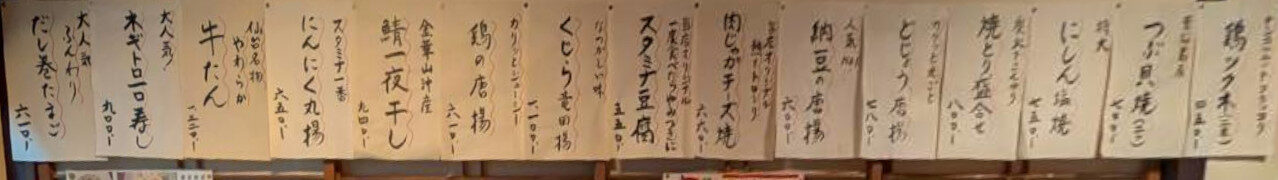 鶏ツクネ(二本)
四五〇ー
つぶ貝焼(二ケ)
七〇〇ー
特大
にしん塩焼
七五〇ー
焼とり盛合せ
八〇〇ー
どじょう唐揚
七八〇ー
人気No.1
納豆の唐揚
六〇〇ー
当店オリジナル
肉じゃがチーズ焼
六六〇ー
当店オリジナル
一度食べたらやみつきに
スタミナ豆腐
五五〇ー
なつかしい味
くじら竜田揚
一、一〇〇ー
カリッとジューシー
鶏の唐揚
六一〇ー
金華山沖産
鯖一夜干し
九四〇ー
スタミナ一番
にんにく丸揚
六五〇ー
仙台名物
やわらか
牛たん
一、二二〇ー
大人気!
ネギトロ一口寿し
九〇〇ー
大人気
ふんわり
だし巻たまご
六一〇ー